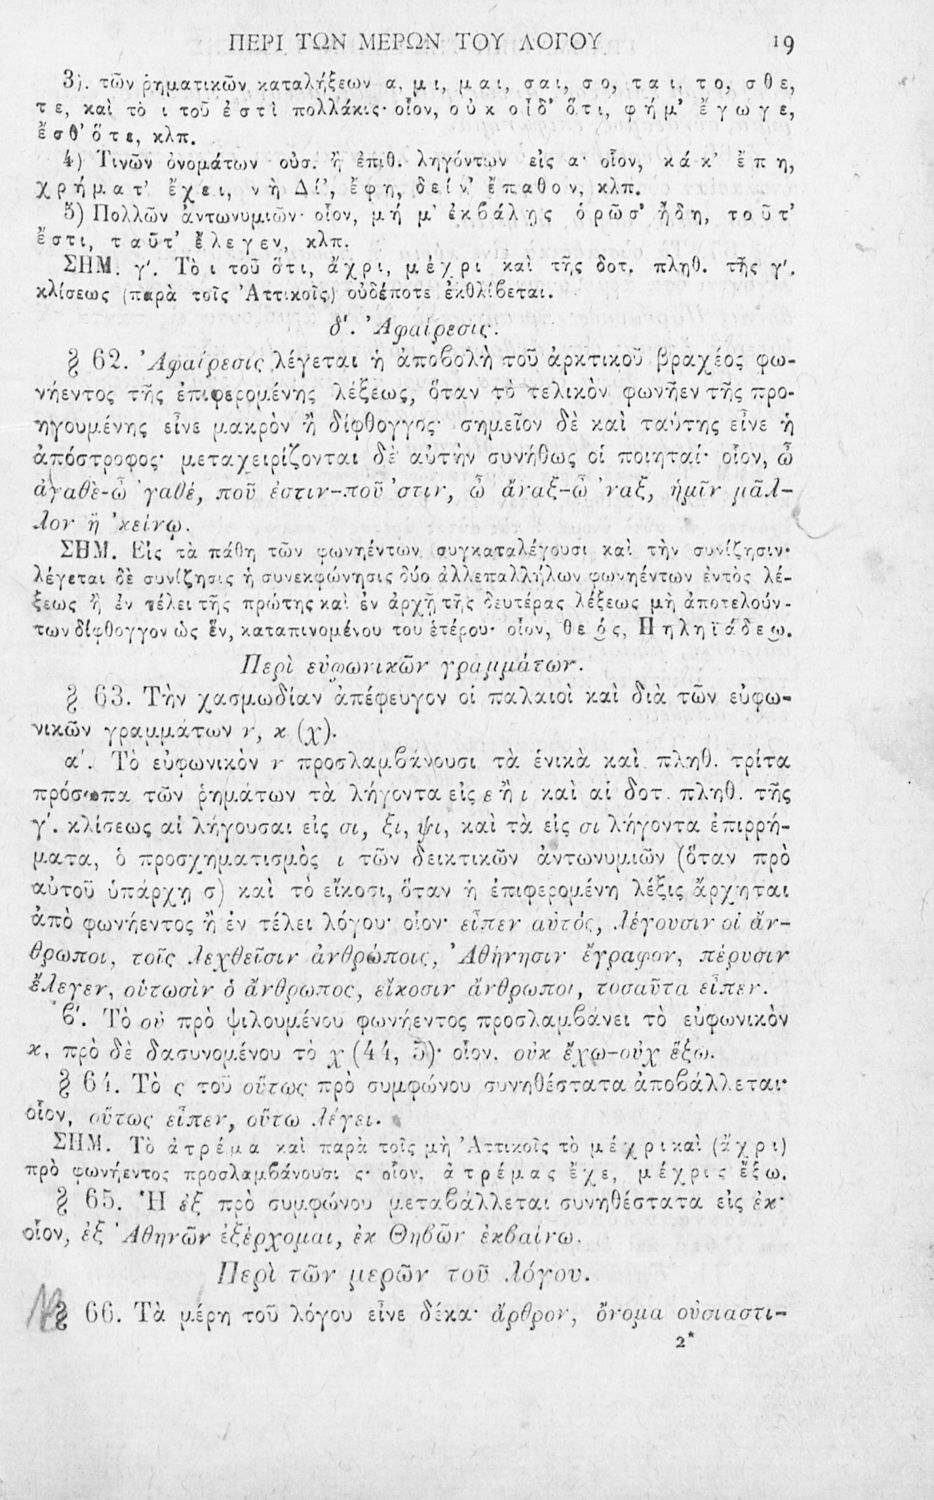 ΠΕΡΙ ΤΩΝ ΜΕΡΩΝ ΤΟΥ ΛΟΓΟΥ 19
3). τῶν ῥηματικῶν καταλήξεων α, μι, μαι, σαι, σο, ται, το, σθε,
τε, καὶ τὸ ι τοῦ ἐστὶ πολλάκις· οἷον, οὐκ οἶδ' ὅτι, φήμ' ἔγωγε,
ἔσθ' ὅτε, κλπ.
4) Τινῶν ὀνομάτων οὐσ. ἢ ἐπιθ. ληγόντων εἰς α· οἷον, κάκ' ἔπη,
χρήματ' ἔχει, νὴ Δί', ἔφη, δείν' ἔπαθον, κλπ.
5) Πολλῶν ἀντωνυμιῶν· οἷον, μή μ' ἐκβάλῃς ὁρῶσ' ἤδη, τοῦτ'
ἔστι, ταῦτ' ἔλεγεν, κλπ.
ΣΗΜ. γ'. Τὸ ι τοῦ ὅτι, ἄχρι, μέχρι καὶ τῆς δοτ. πληθ. τῆς γ'.
κλίσεως (παρὰ τοῖς Ἀττικοῖς) οὐδέποτε ἐκθλίβεται.
δ'. Ἀφαίρεσις.
§ 62. Ἀφαίρεσις λέγεται ἡ ἀποβολὴ τοῦ ἀρκτικοῦ βραχέος φω-
νήεντος τῆς ἐπιφερομένης λέξεως, ὅταν τὸ τελικὸν φωνῆεν τῆς προ-
ηγουμένης εἶνε μακρὸν ἢ δίφθογγος· σημεῖον δὲ καὶ ταύτης εἶνε ἡ
ἀπόστροφος· μεταχειρίζονται δὲ αὐτὴν συνήθως οἱ ποιηταί· οἷον, ὦ
ἀγαθὲ-ὦ 'γαθέ, ποῦ ἐστιν-ποῦ 'στιν, ὦ ἄναξ-ὦ 'ναξ, ἡμῖν μᾶλ-
λον ἢ 'κείνῳ.
ΣΗΜ. Εἰς τὰ πάθη τῶν φωνηέντων συγκαταλέγουσι καὶ τὴν συνίζησιν·
λέγεται δὲ συνίζησις ἡ συνεκφώνησις δύο ἀλλεπαλλήλων φωνηέντων ἐντὸς λέ-
ξεως ἢ ἐν τέλει τῆς πρώτης καὶ ἐν ἀρχῇ τῆς δευτέρας λέξεως μὴ ἀποτελούν-
των δίφθογγον ὡς ἕν, καταπινομένου τοῦ ἑτέρου· οἷον, θεός, Πηληϊάδεω.
Περὶ εὐφωνικῶν γραμμάτων.
§ 63. Τὴν χασμωδίαν ἀπέφευγον οἱ παλαιοὶ καὶ διὰ τῶν εὐφω-
νικῶν γραμμάτων ν, κ (χ).
α'. Τὸ εὐφωνικὸν ν προσλαμβάνουσι τὰ ἑνικὰ καὶ πληθ. τρίτα
πρόσωπα τῶν ῥημάτων τὰ λήγοντα εἰς ε ἢ ι καὶ αἱ δοτ. πληθ. τῆς
γ'. κλίσεως αἱ λήγουσαι εἰς σι, ξι, ψι, καὶ τὰ εἰς σι λήγοντα ἐπιρρή-
ματα, ὁ προσχηματισμὸς ι τῶν δεικτικῶν ἀντωνυμιῶν (ὅταν πρὸ
αὐτοῦ ὑπάρχῃ σ) καὶ τὸ εἴκοσι, ὅταν ἡ ἐπιφερομένη λέξις ἄρχηται
ἀπὸ φωνήεντος ἢ ἐν τέλει λόγου· οἷον· εἶπεν αὐτός, λέγουσιν οἱ ἄν-
θρωποι, τοῖς λεχθεῖσιν ἀνθρώποις, Ἀθήνησιν ἔγραφον, πέρυσιν
ἔλεγεν, οὑτωσὶν ὁ ἄνθρωπος, εἴκοσιν ἄνθρωποι, τοσαῦτα εἶπεν.
β'. Τὸ οὐ πρὸ ψιλουμένου φωνήεντος προσλαμβάνει τὸ εὐφωνικὸν
κ, πρὸ δὲ δασυνομένου τὸ χ (44, 5)· οἷον. οὐκ ἔχω-οὐχ ἕξω.
§ 64. Τὸ ς τοῦ οὕτως πρὸ συμφώνου συνηθέστατα ἀποβάλλεται·
οἷον, οὕτως εἶπεν, οὕτω λέγει.
ΣΗΜ. Τὸ ἀτρέμα καὶ παρὰ τοῖς μὴ Ἀττικοῖς τὸ μέχρι καὶ (ἄχρι)
πρὸ φωνήεντος προσλαμβάνουσι ς· οἷον. ἀτρέμας ἔχε, μέχρις ἕξω.
§ 65. Ἡ ἐξ πρὸ συμφώνου μεταβάλλεται συνηθέστατα εἰς ἐκ·
οἷον, ἐξ Ἀθηνῶν ἐξέρχομαι, ἐκ Θηβῶν ἐκβαίνω.
Περὶ τῶν μερῶν τοῦ λόγου.
§ 66. Τὰ μέρη τοῦ λόγου εἶνε δέκα· ἄρθρον, ὄνομα οὐσιαστι-
2*